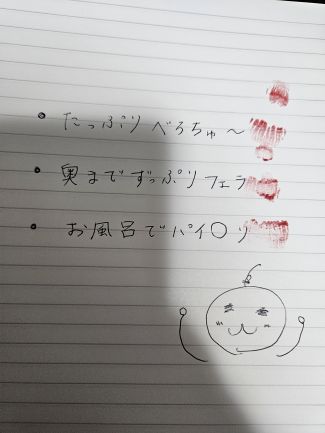 • たっぷりべろちゅ〜
• 奥までずっぷりフェラ
• お風呂でパイ〇リ